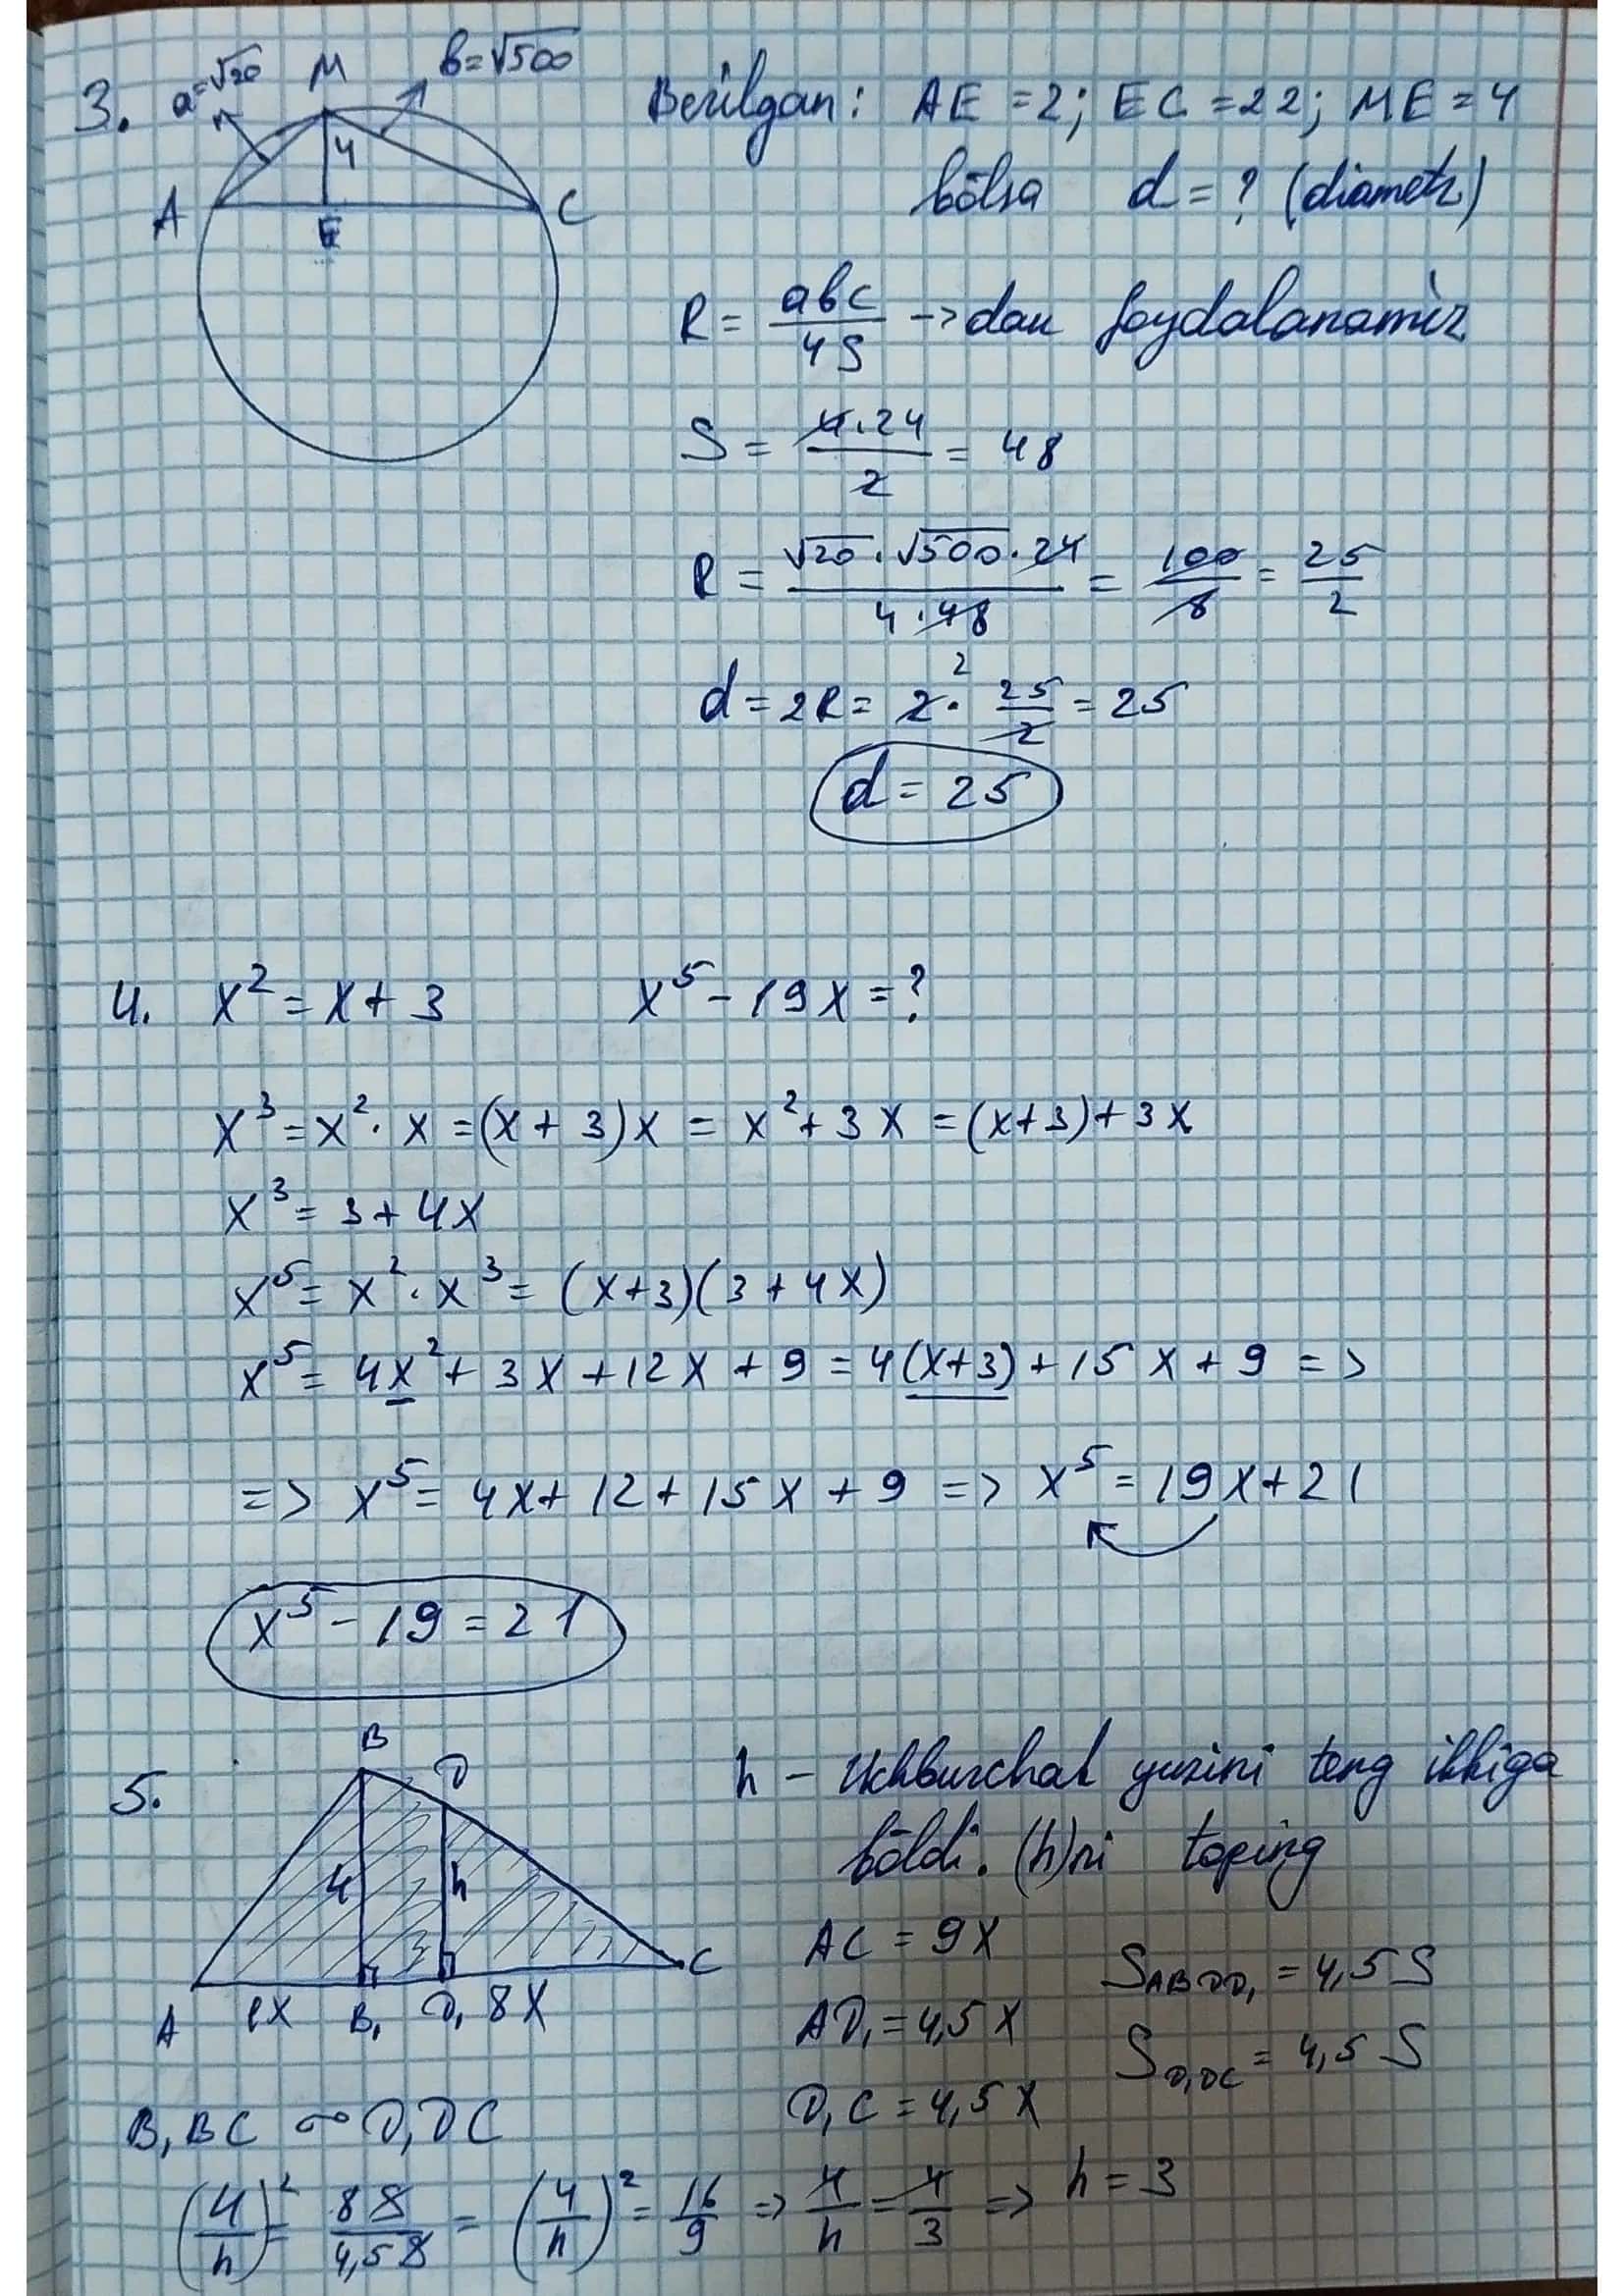 3. a=√20 M b=√500
4
A E C
Berilgan: AE=2; EC=22; ME=4
bo'lsa d=? (diametr)
R = abc/4S -> dan foydalanamiz
S = 4·24/2 = 48
R = √20·√500·24/4·48 = 100/8 = 25/2
2
d=2R= 2· 25/2 = 25
d = 25
4. x² = x+3 x⁵ - 19x = ?
x³ = x²·x = (x+3)x = x²+3x = (x+3)+3x
x³ = 3+4x
x⁵ = x²·x³ = (x+3)(3+4x)
x⁵ = 4x²+3x+12x+9 = 4(x+3)+15x+9 =>
=> x⁵ = 4x+12+15x+9 => x⁵ = 19x+21
x⁵ - 19 = 21
5. B D
4 h
A 1x B₁ D₁ 8x C
h - uchburchak yuzini teng ikkiga
bo'ldi. (h)ni toping
AC = 9x
AD₁ = 4,5x
D₁C = 4,5x
S_ABDD₁ = 4,5S
S_D₁DC = 4,5S
B₁BC ∾ D₁DC
(4/h)² = 8S/4,5S = (4/h)² = 16/9 => 4/h = 4/3 => h = 3